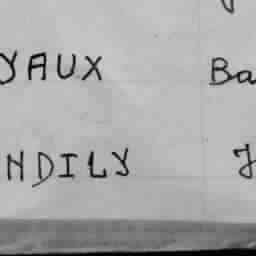 YAUX Ba
NDILY J